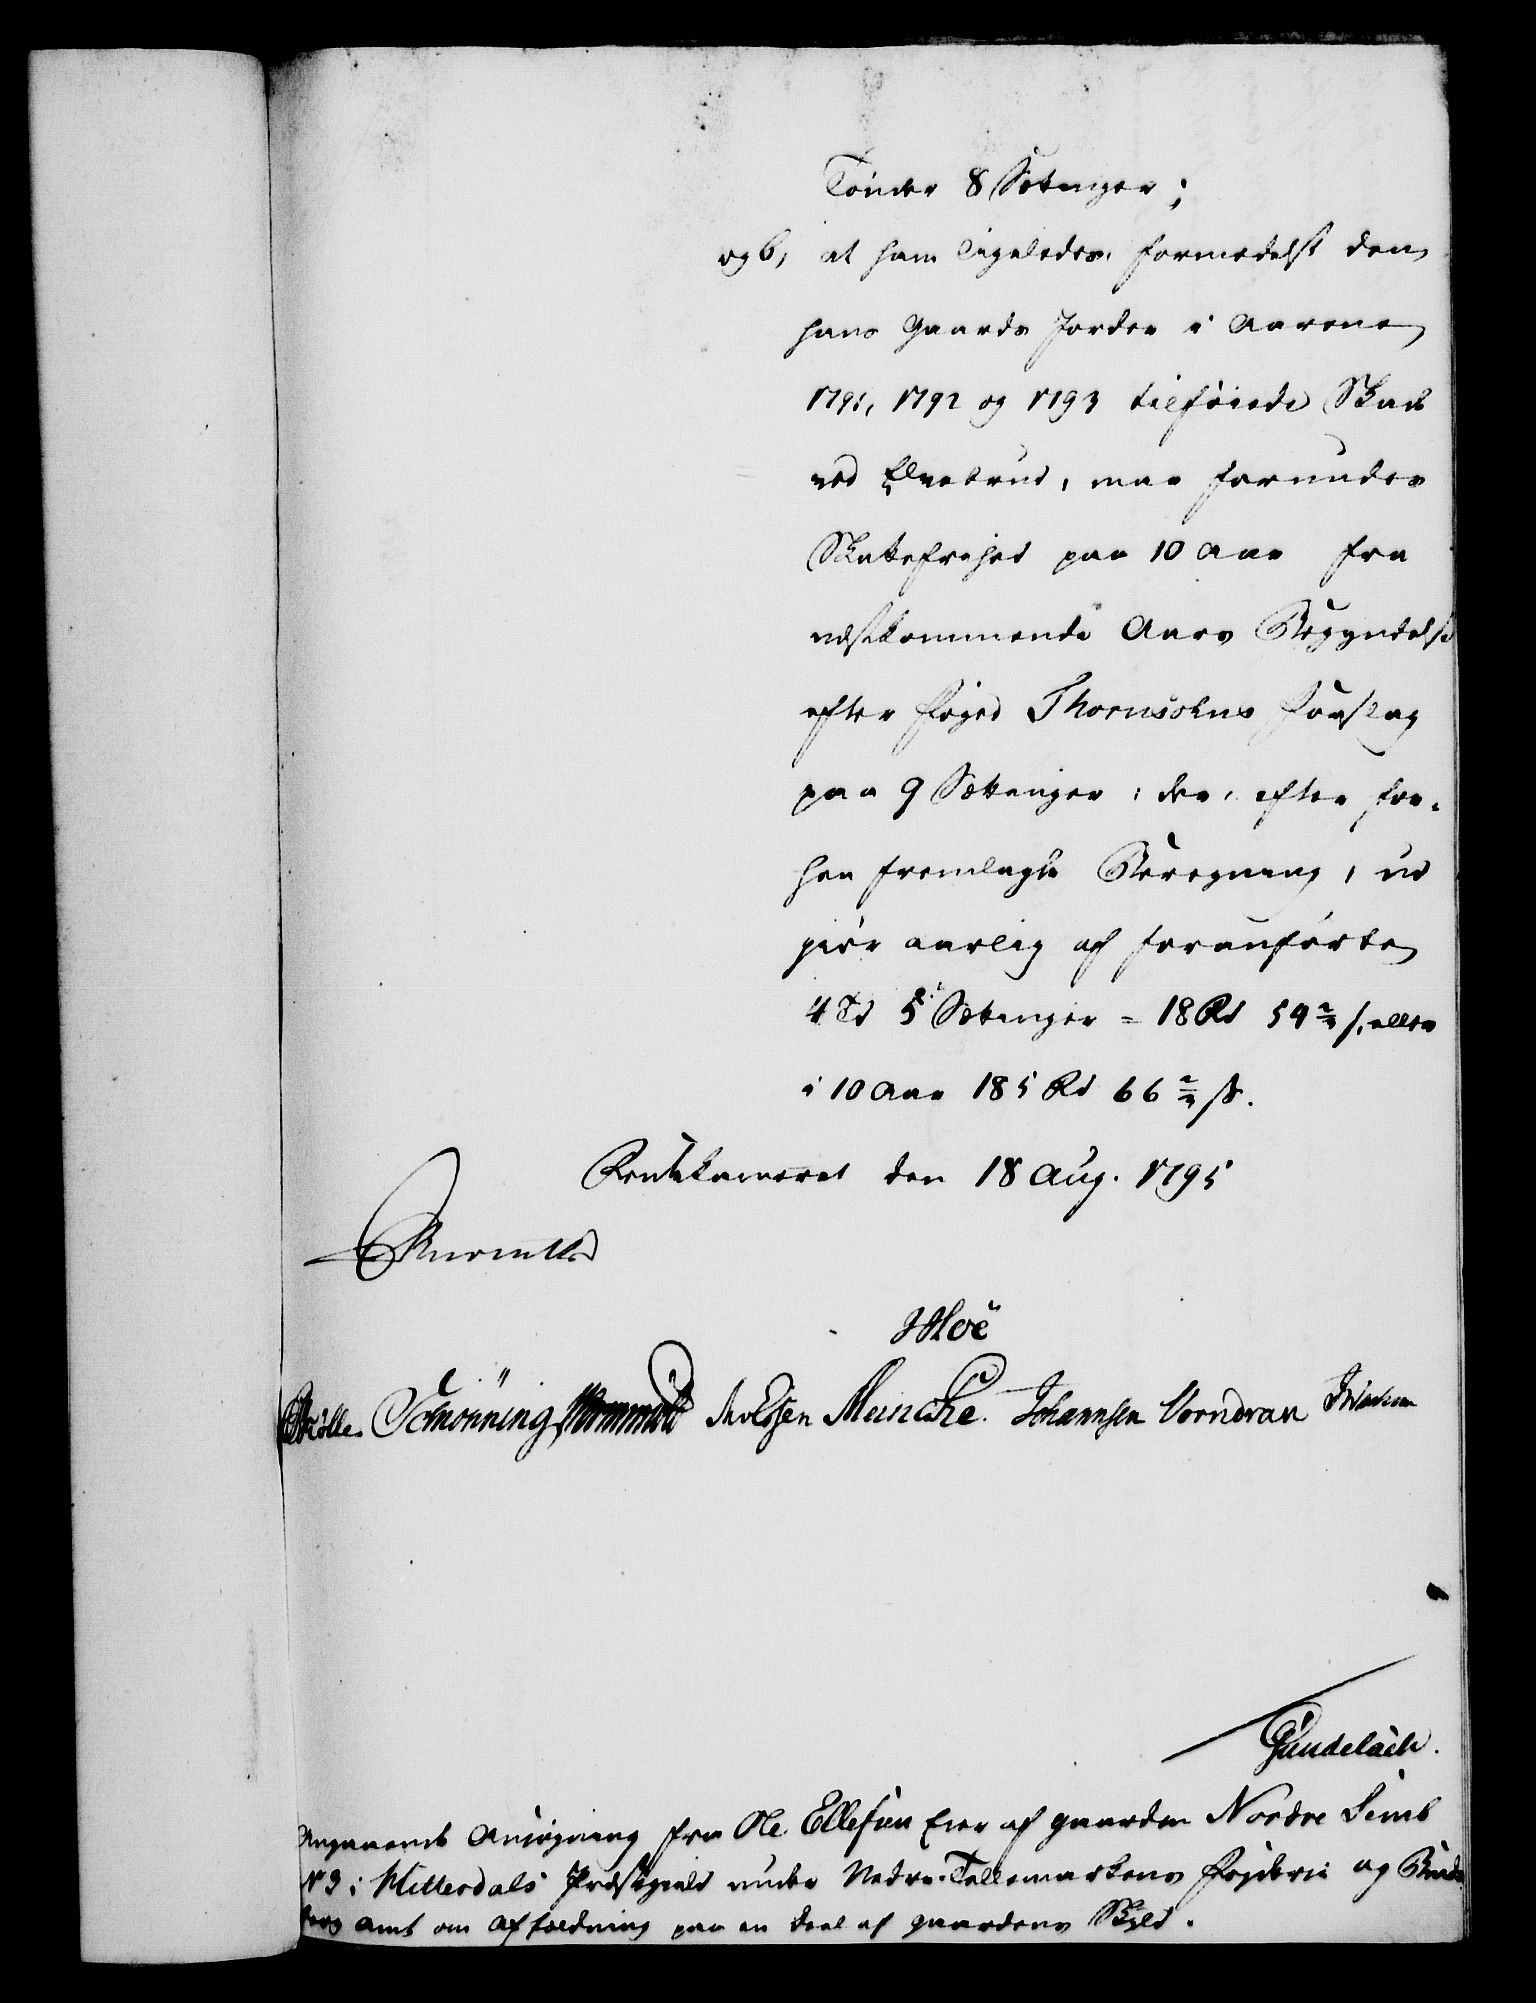 Tönder 8 Sætinger;
og 6, at ham ligeledes, formedelst den
hans Gaards Jorder i Aarene
1791, 1792 og 1793 tilföiede Skade
ved Elvebrud, maa forundes
Skattefrihed paa 10 Aar fra
næstkommende Aars Begyndelse
efter Foged Thornsohns Forslag
paa 9 Sættinger: der, efter for-
hen fremlagte Beregning, ud
giör aarlig af foranförte
4 Td 5 Sætinger = 18 Rd 54 2/3 s, eller
i 10 Aar 185 Rd 66 2/3 s.
Rentekammeret den 18 Aug. 1795
JHoë
Schönning Wormskiold Meincke. Johannsen Vorndran
Gundelach.
Angaaende Ansögning fra Ole Ellefsen Eier af Gaarden Nordre Semb
No 3 i Hitterdals Præstegield under Nedre-Tellemarkens Fogderie og Brads-
berg Amt om Affældning paa en Deel af Gaardens Skyld.